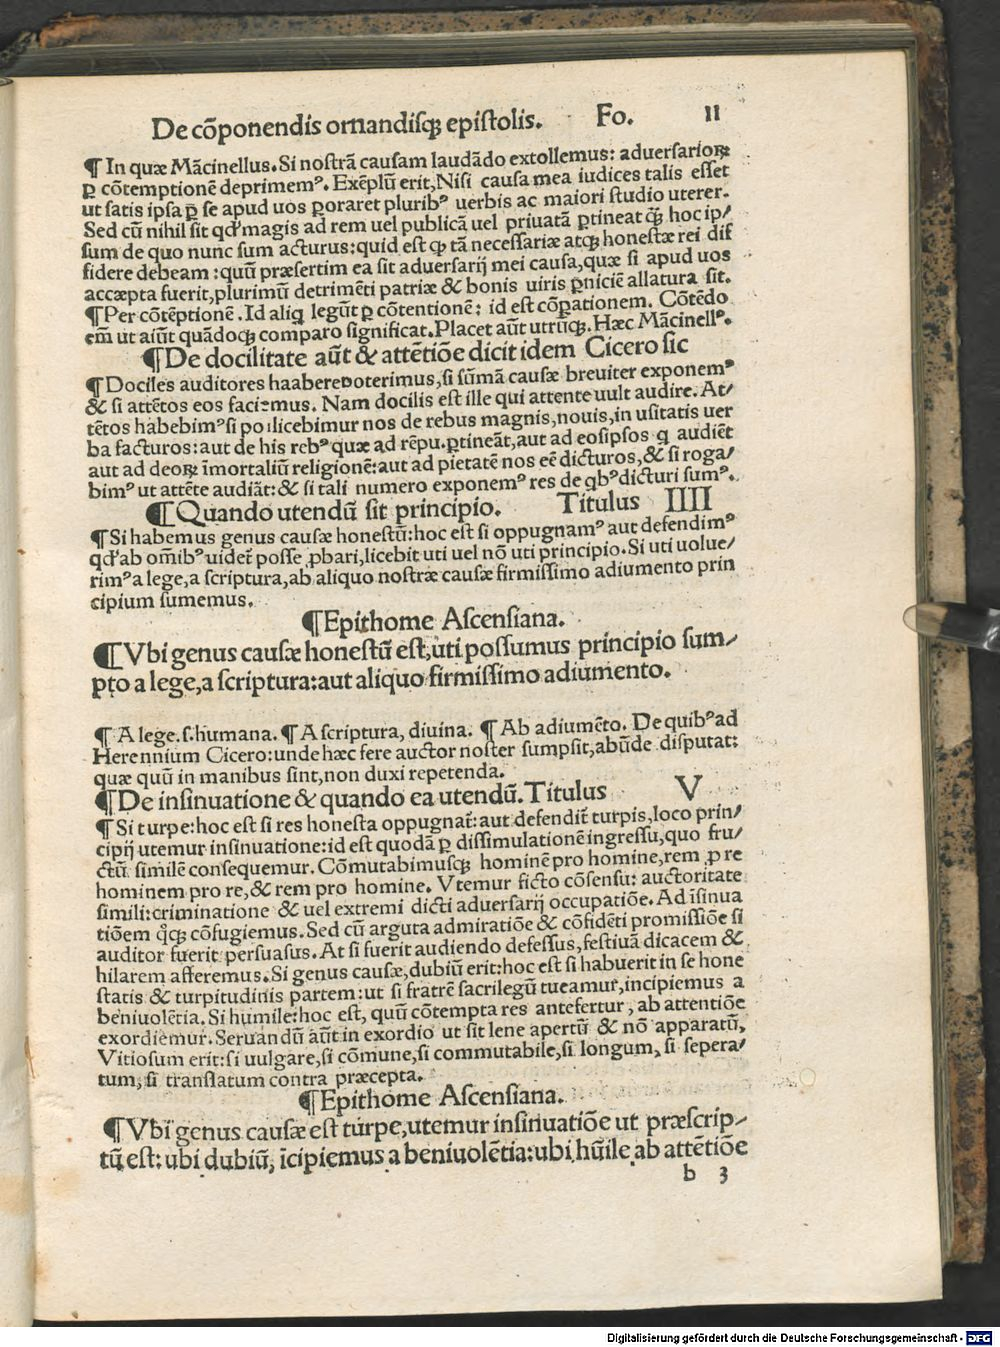 De cõponendis ornandisqꝫ epistolis. Fo. II
¶ In quæ Mãcinellus. Si nostrã causam laudãdo extollemus: aduersarioꝝ
ꝑ cõtemptionẽ deprimemꝰ. Exẽplũ erit, Nisi causa mea iudices talis esset
ut satis ipsa ꝑ se apud uos ꝑoraret pluribꝰ uerbis ac maiori studio uterer.
Sed cũ nihil sit qđ magis ad rem uel publicã uel priuatã ꝑtineat q̃ȝ hoc ip/
sum de quo nunc sum acturus: quid est qꝫ tã necessariæ atqꝫ honestæ rei dif
fidere debeam: quũ præsertim ea sit aduersarij mei causa, quæ si apud uos
accæpta fuerit, plurimũ detrimẽti patriæ & bonis uiris ꝑniciẽ allatura sit.
¶ Per cõtẽptionẽ. Id aliq legũt ꝑ cõtentionẽ: id est cõꝑationem. Cõtẽdo
em̃ ut aiũt quãdocꝫ comparo significat. Placet aũt utrũqꝫ. Hæc Mãcinellꝰ.
¶ De docilitate aũt & attẽtiõe dicit idem Cicero sic
¶ Dociles auditores haabere poterimus, si sũmã causæ breuiter exponemꝰ
& si attẽtos eos faciemus. Nam docilis est ille qui attente uult audire. At/
tẽtos habebimꝰ si pollicebimur nos de rebus magnis, nouis, in usitatis uer
ba facturos: aut de his rebꝰ quæ ad rẽpu. ꝑtineãt, aut ad eosipsos q audiẽt
aut ad deoꝝ ĩmortaliũ religionẽ: aut ad pietatẽ nos eẽ dicturos, & si roga/
bimꝰ ut attẽte audiãt: & si tali numero exponemꝰ res de qbꝰ dicturi sumꝰ.
¶ Quando utendũ sit principio. Titulus IIII
¶ Si habemus genus causæ honestũ: hoc est si oppugnamꝰ aut defendimꝰ
qđ ab om̃ibꝰ uidet̃ posse ꝓbari, licebit uti uel nõ uti principio. Si uti uolue/
rimꝰ a lege, a scriptura, ab aliquo nostræ causæ firmissimo adiumento prin
cipium sumemus.
¶ Epithome Ascensiana.
¶ Vbi genus causæ honestũ est, uti possumus principio sum/
pto a lege, a scriptura: aut aliquo firmissimo adiumento.
¶ A lege. s. humana. ¶ A scriptura, diuina. ¶ Ab adiumẽto. De quibꝰ ad
Herennium Cicero: unde hæc fere auctor noster sumpsit, abũde disputat:
quæ quũ in manibus sint, non duxi repetenda.
¶ De insinuatione & quando ea utendũ. Titulus V
¶ Si turpe: hoc est si res honesta oppugnat̃: aut defendit̃ turpis, loco prin/
cipij utemur insinuatione: id est quodã ꝑ dissimulationẽ ingressu, quo fru/
ctũ similẽ consequemur. Cõmutabimusqꝫ hominẽ pro homine, rem ꝓ re
hominem pro re, & rem pro homine. Vtemur ficto cõsensu: auctoritate
simili: criminatione & uel extremi dicti aduersarij occupatiõe. Ad ĩsinua
tiõem q̊cꝫ cõfugiemus. Sed cũ arguta admiratiõe & cõfidẽti promissiõe si
auditor fuerit persuasus. At si fuerit audiendo defessus, festiuã dicacem &
hilarem afferemus. Si genus causæ, dubiũ erit: hoc est si habuerit in se hone
statis & turpitudinis partem: ut si fratrẽ sacrilegũ tueamur, incipiemus a
beniuolẽtia. Si humile: hoc est, quũ cõtempta res antefertur, ab attentiõe
exordiemur. Seruandũ aũt in exordio ut sit lene apertũ & nõ apparatũ,
Vitiosum erit: si uulgare, si cõmune, si commutabile, si longum, si sepera/
tum, si translatum contra præcepta.
¶ Epithome Ascensiana.
¶ Vbi genus causæ est turpe, utemur insinuatiõe ut præscrip/
tũ est: ubi dubiũ, ĩcipiemus a beniuolẽtia: ubi hũile ab attẽtiõe
b 3
Digitalisierung gefördert durch die Deutsche Forschungsgemeinschaft - DFG